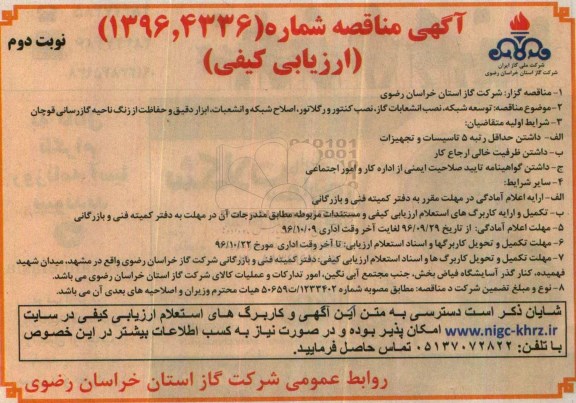 آگهی مناقصه شماره(۱۳۹۶,۴۳۳۶)
(ارزیابی کیفی)
نوبت دوم
شرکت ملی گاز ایران
شرکت گاز استان خراسان رضوی
۱- مناقصه گزار: شرکت گاز استان خراسان رضوی
۲-موضوع مناقصه: توسعه شبکه، نصب انشعابات گاز، نصب کنتور و رگلاتور، اصلاح شبکه و انشعابات، ابزار دقیق و حفاظت از زنگ ناحیه گازرسانی قوچان
۳- شرایط اولیه متقاضیان:
الف- داشتن حداقل رتبه ۵ تاسیسات و تجهیزات
ب- داشتن ظرفیت خالی ارجاع کار
ج- داشتن گواهینامه تایید صلاحیت ایمنی از اداره کار و امور اجتماعی
۴- سایر شرایط:
الف- ارایه اعلام آمادگی در مهلت مقرر به دفتر کمیته فنی و بازرگانی
ب- تکمیل و ارایه کاربرگ های استعلام ارزیابی کیفی و مستندات مربوطه مطابق مندرجات آن در مهلت به دفتر کمیته فنی و بازرگانی
۵- مهلت اعلام آمادگی: از تاریخ ۹۶/۰۹/۲۹ لغایت آخر وقت اداری ۹۶/۱۰/۰۹
۶- مهلت تکمیل و تحویل کاربرگها و اسناد استعلام ارزیابی: تا آخر وقت اداری مورخ ۹۶/۱۰/۲۳
۷- مهلت تکمیل و تحویل کاربرگ ها و اسناد استعلام ارزیابی کیفی: دفتر کمیته فنی و بازرگانی شرکت گاز خراسان رضوی واقع در مشهد، میدان شهید
فهمیده، کنار گذر آسایشگاه فیاض بخش، جنب مجتمع آبی نگین، امور تدارکات و عملیات کالای شرکت گاز استان خراسان رضوی می باشد.
۸- نوع و مبلغ تضمین شرکت د مناقصه: مطابق مصوبه شماره ۱۲۳۴۰۲/ت۵۰۶۵۹ هیات محترم وزیران و اصلاحیه های بعدی آن می باشد.
شایان ذکر است دسترسی به متن این آگهی و کاربرگ های استعلام ارزیابی کیفی در سایت
www.nigc-khrz.ir امکان پذیر بوده و در صورت نیاز به کسب اطلاعات بیشتر در این خصوص
با تلفن: ۰۵۱۳۷۰۷۲۸۲۲ تماس حاصل فرمایید.
روابط عمومی شرکت گاز استان خراسان رضوی